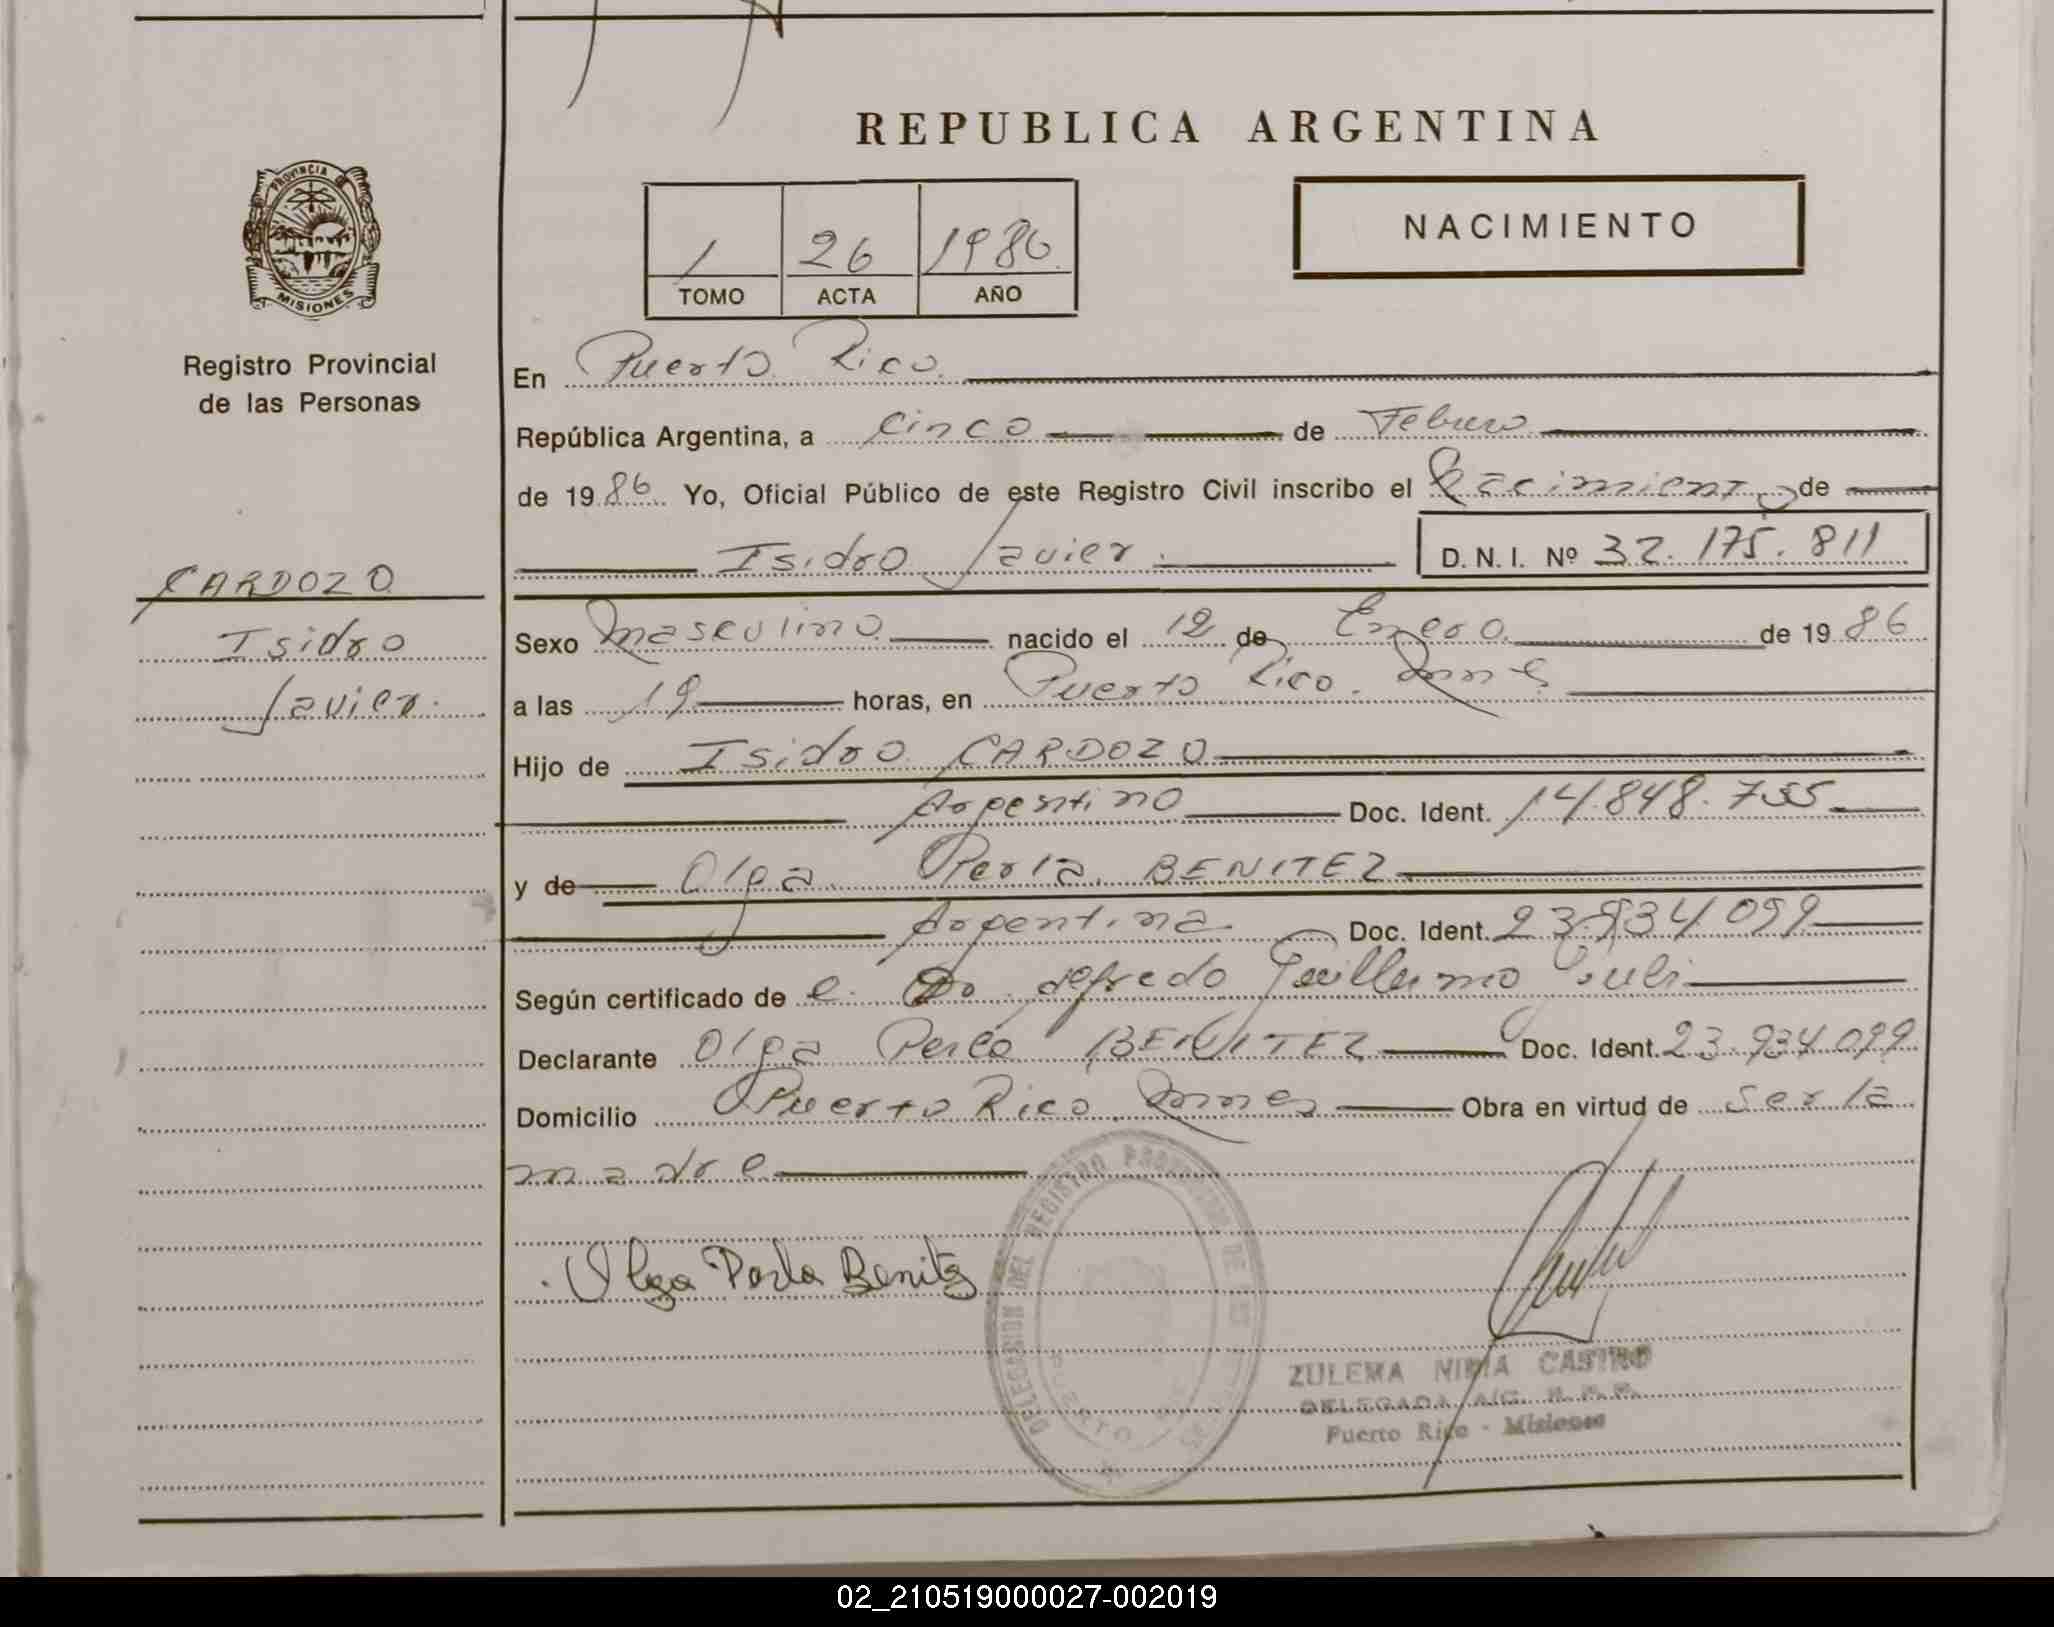 REPUBLICA ARGENTINA
PROVINCIA DE
MISIONES
1 26 1986
TOMO ACTA AÑO
NACIMIENTO
Registro Provincial
de las Personas
CARDOZO
Isidro
Javier.
En Puerto Rico.
República Argentina, a Cinco de Febrero
de 1986 Yo, Oficial Público de este Registro Civil inscribo el Nacimiento de
Isidro Javier. D. N. I. Nº 32.175.811
Sexo Masculino nacido el 12 de Enero de 1986
a las 19 horas, en Puerto Rico. Mnes
Hijo de Isidro CARDOZO
Argentino Doc. Ident. 14.848.755
y de Olga Perla BENITEZ
Argentina Doc. Ident. 23.934.099
Según certificado de e. Dr. Alfredo Guillermo
Declarante Olga Perla BENITEZ Doc. Ident. 23.934.099
Domicilio Puerto Rico Mnes Obra en virtud de ser la
madre
Olga Perla Benitez
DELEGACION DEL REGISTRO PROVINCIAL DE LAS
PUERTO
ZULEMA NIMIA CASTRO
DELEGADA A/C. R. P. P.
Puerto Rico - Misiones
02_210519000027-002019